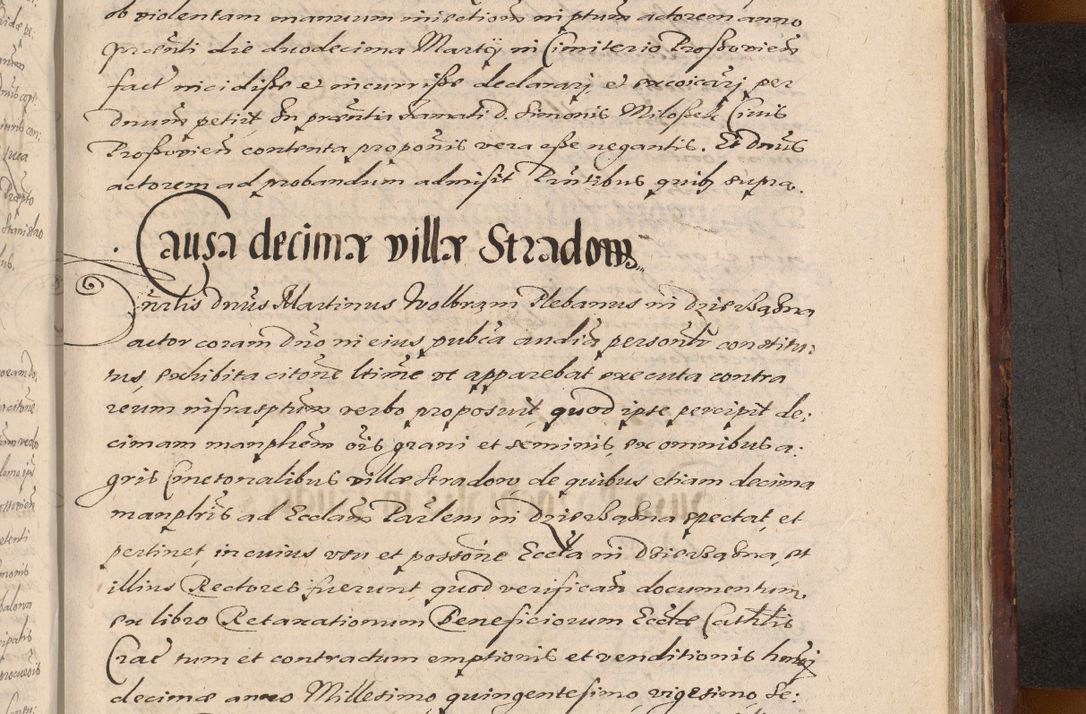 ob violentam manuum iniectionem in ptum actorem anno
prnti die duodecima Martij in Cimiterio Proßovien
fact incidiße et incurriße declarari, et excoicari per
dnum petiit. In prntia famati d. Simonis Miloßek Civis
Proßovien contenta proponis vera eße negantis. Et Dnus
actorem ad probandum admisit Prntibus quib supra.
Causa decimæ villæ Stradow
Vnrlis dnus Martinus Wolbram Plebanus in Dzierhażna
actor coram dno in eius pubca audia personlr constitu:
tus, exhibita citone ltime vt apparebat executa contra
reum infrasptum verbo proposuit, quod ipse percipit de:
cimam manplrem ois grani et seminis, ex omnibus a:
gris Cmetonalibus villæ Stradow, de quibus etiam decima
manplris ad Ecclam Parlem in Dzierhażna spectat, et
pertinet, in cuius vsu et possone Eccla in Dzierhażna, et
illius Rectores fuerunt, quod verifican documentum
ex libro Retaxationum Beneficiorum Ecclæ Cathlis
Crac tum et contractum emptionis et venditionis huusi
decimæ anno Millesimo quingentesimo, vigesimo, se: